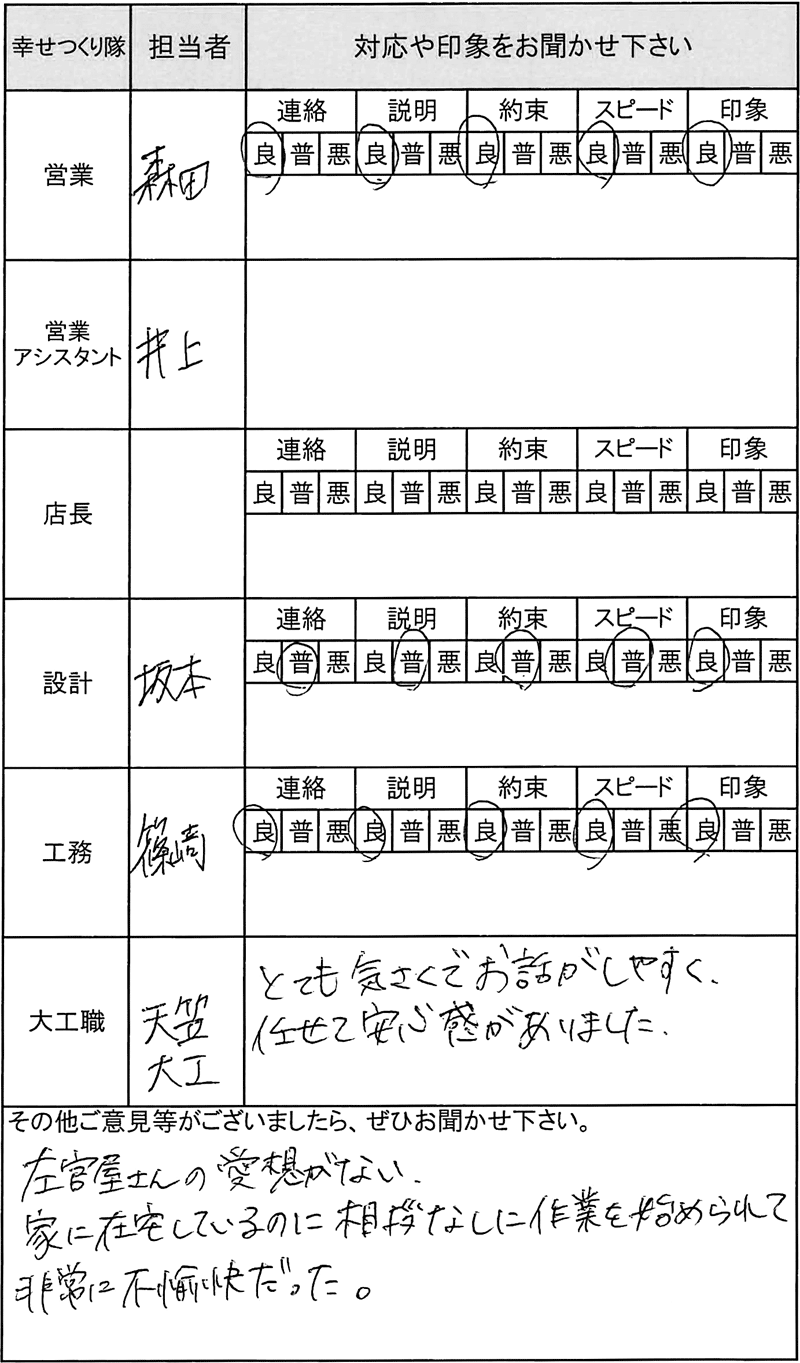 幸せつくり隊 担当者 対応や印象をお聞かせ下さい
営業 森田
連絡 説明 約束 スピード 印象
良 普 悪 良 普 悪 良 普 悪 良 普 悪 良 普 悪
営業
アシスタント
井上
店長
連絡 説明 約束 スピード 印象
良 普 悪 良 普 悪 良 普 悪 良 普 悪 良 普 悪
設計 坂本
連絡 説明 約束 スピード 印象
良 普 悪 良 普 悪 良 普 悪 良 普 悪 良 普 悪
工務 篠崎
連絡 説明 約束 スピード 印象
良 普 悪 良 普 悪 良 普 悪 良 普 悪 良 普 悪
大工職
天笠
大工
とても気さくでお話がしやすく、
任せて安心感がありました.
その他ご意見等がございましたら、ぜひお聞かせ下さい。
左官屋さんの愛想がない.
家に在宅しているのに相拶なしに作業を始められて
非常に不愉快だった。